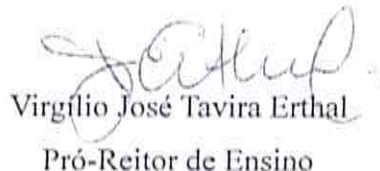 Virgílio José Tavira Erthal
Pró-Reitor de Ensino